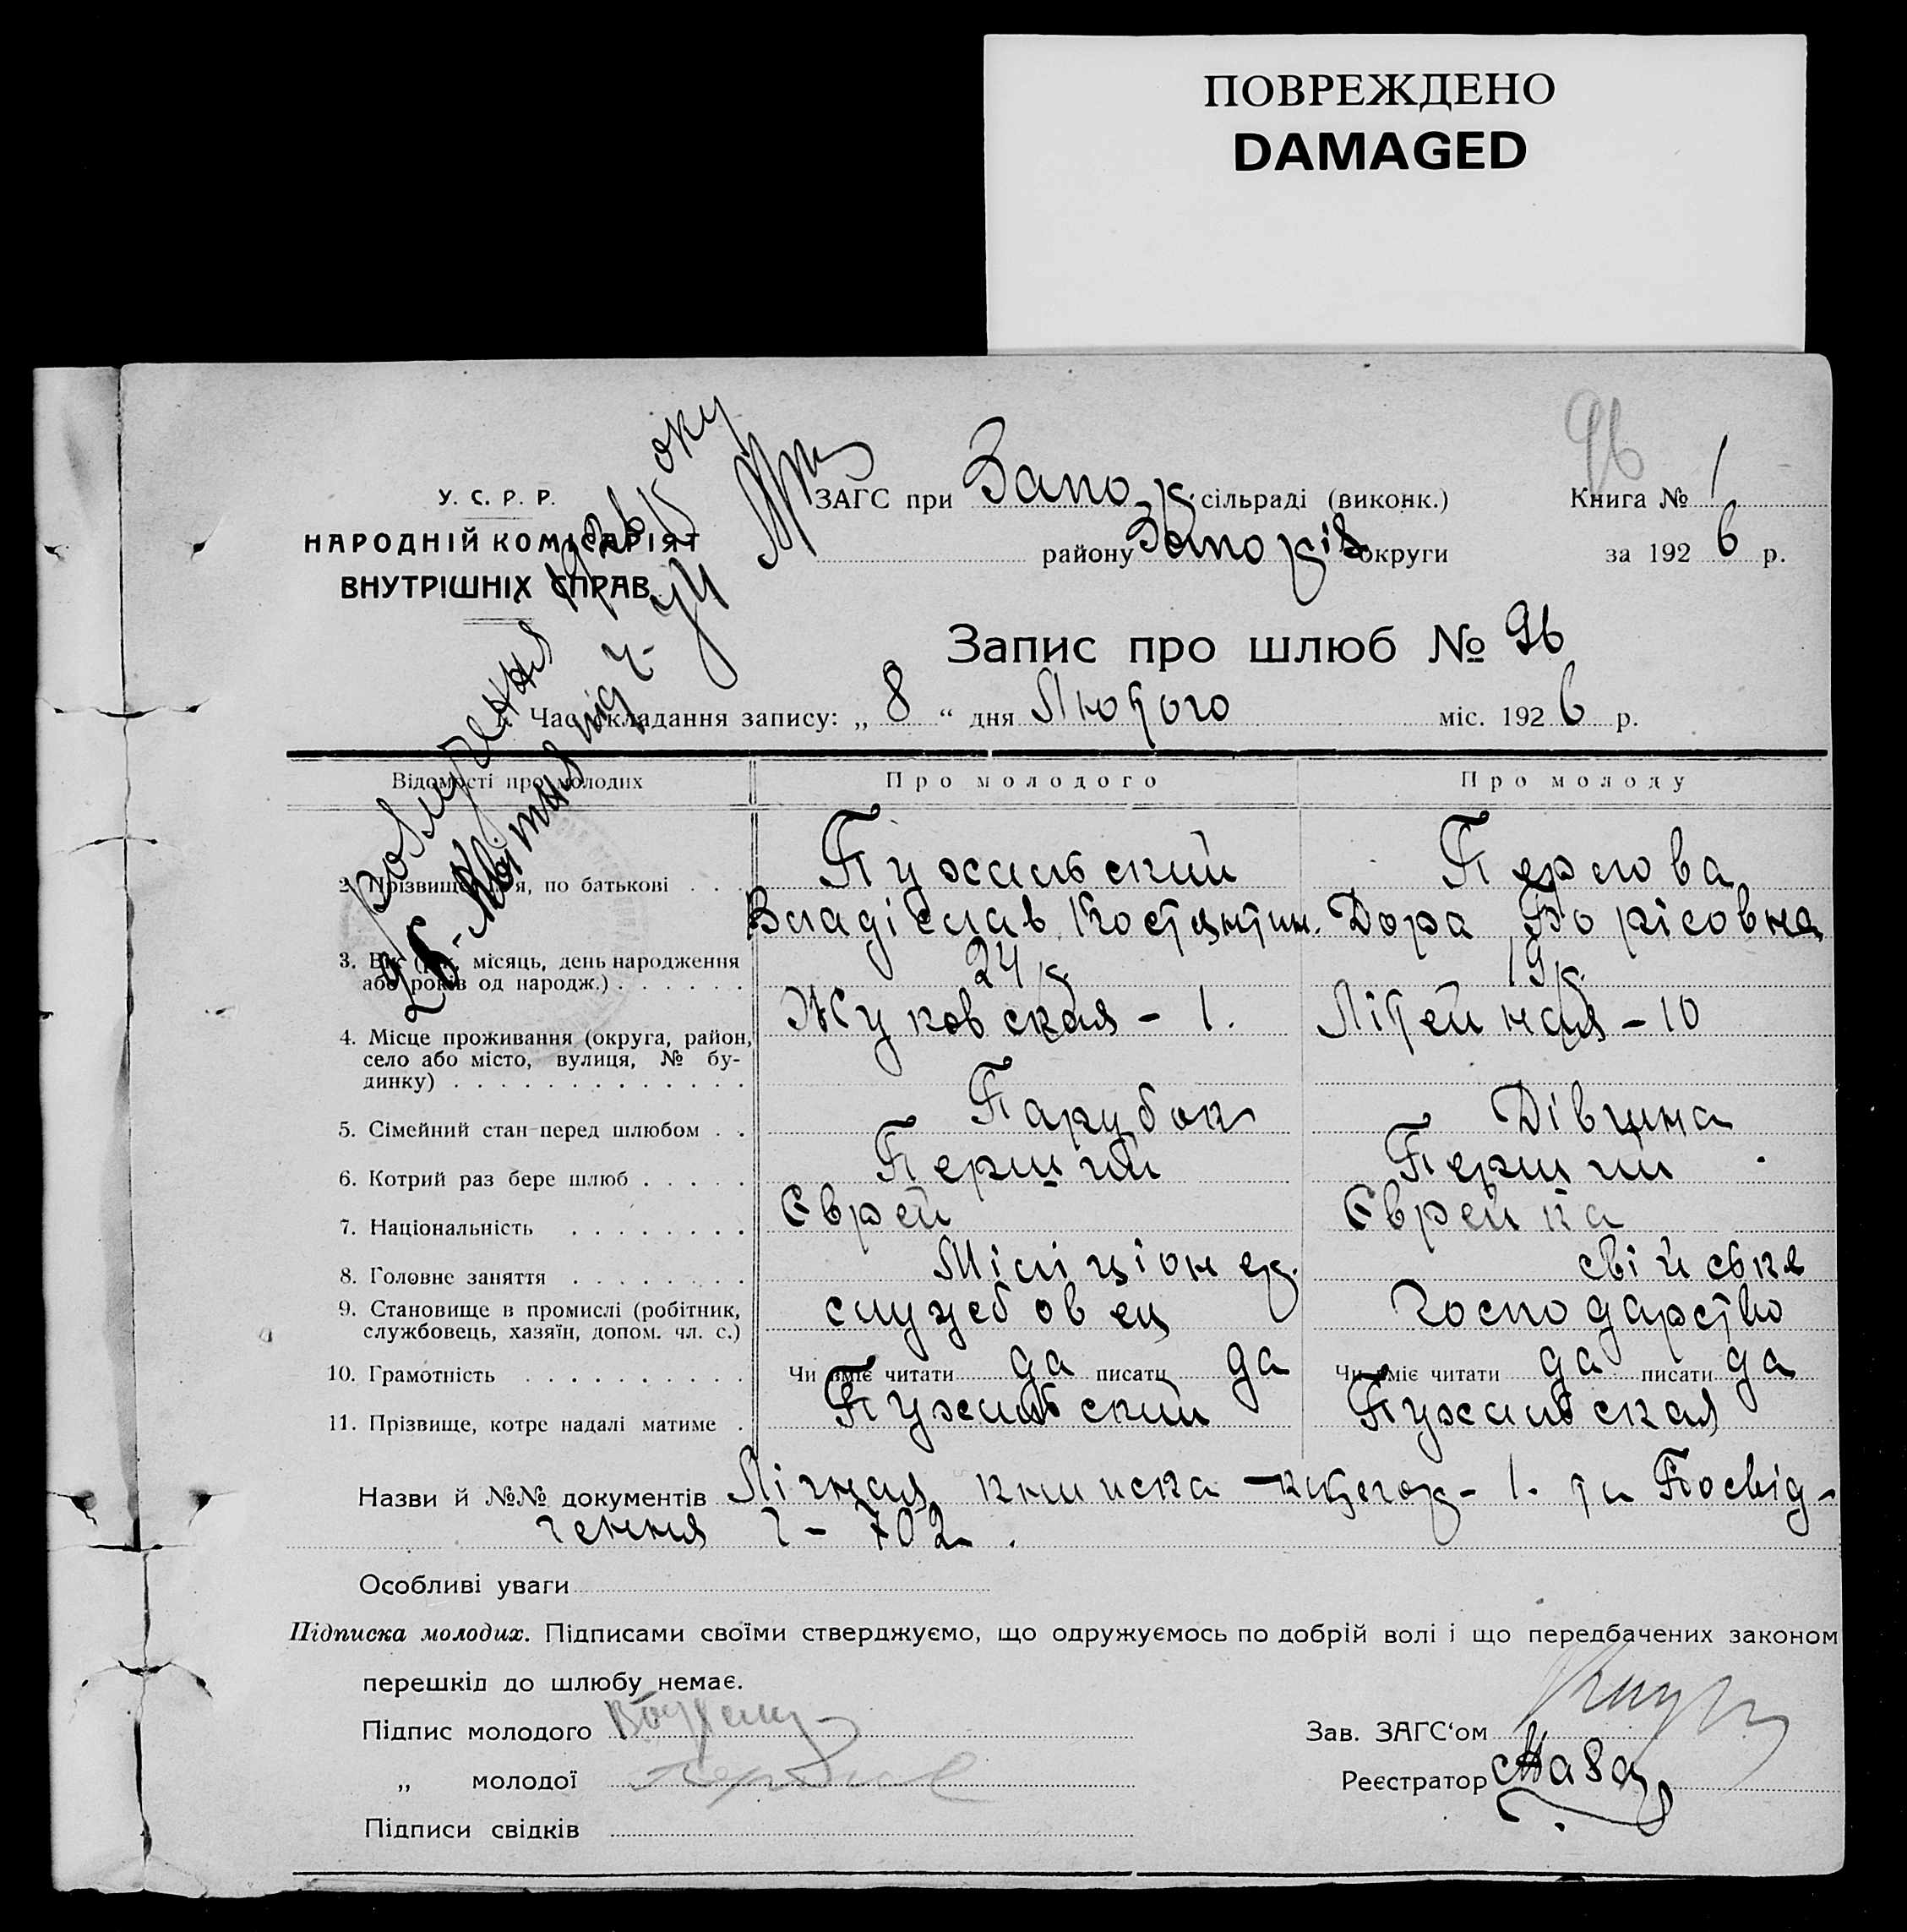 ПОВРЕЖДЕНО
DAMAGED
96
У. С. Р. Р.
НАРОДНІЙ КОМІСАРІЯТ
ВНУТРІШНІХ СПРАВ
ЗАГС при Запо р. сільраді (виконк.)
району Запорів округи
Книга № 1
за 1926 р.
Запис про шлюб № 96
Час складання запису: „ 8 “ дня Лютого міс. 1926 р.
Відомості про молодих
Про молодого
Про молоду
2. Прізвище, ім'я, по батькові
Пухальський
Владіслав Костянтин.
Перлова
Дора Борісовна
3. Вік (рік, місяць, день народження
або років од народж.)
24 р.
19 р.
4. Місце проживання (округа, район,
село або місто, вулиця, № бу-
динку)
Жуковская - 1.
Літейная - 10
5. Сімейний стан перед шлюбом
Парубок
Дівчина
6. Котрий раз бере шлюб
Перший
Перший
7. Національність
Єврей
Єврейка
8. Головне заняття
Міліціонер.
свійське
9. Становище в промислі (робітник,
службовець, хазяїн, допом. чл. с.)
службовец
господарство
10. Грамотність
Чи вміє читати да писати да
Чи вміє читати да писати да
11. Прізвище, котре надалі матиме
Пухальський
Пухальская
Назви й №№ документів Лічная книжка 1. та Посвід-
чення ч - 702.
Особливі уваги
Підписка молодих. Підписами своїми стверджуємо, що одружуємось по добрій волі і що передбачених законом
перешкід до шлюбу немає.
Підпис молодого
„ молодої
Підписи свідків
Зав. ЗАГС‘ом
Реєстратор
розлучення 1926 року
26 - Квітня під ч - 74